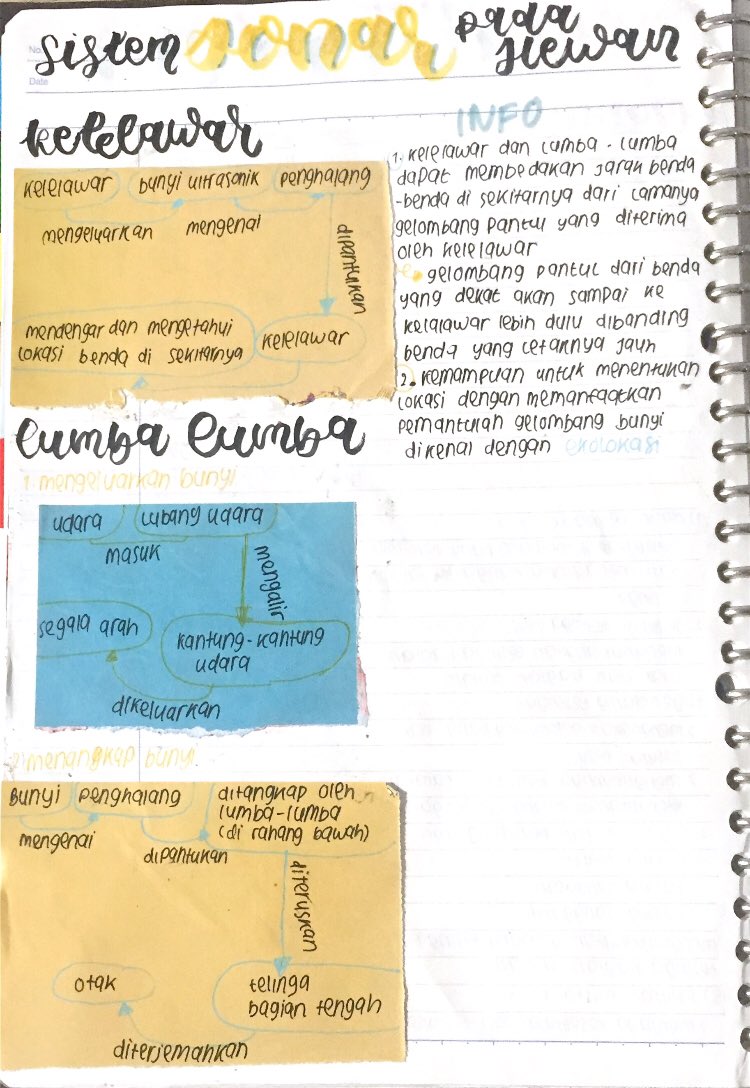 No.
Date
sistem sonar pada Hewan
kelelawar
kelelawar bunyi ultrasonik penghalang
mengeluarkan mengenai
dipantulkan
mendengar dan mengetahui
lokasi benda di sekitarnya
kelelawar
INFO
1. kelelawar dan lumba - lumba
dapat membedakan jarak benda
-benda di sekitarnya dari lamanya
gelombang pantul yang diterima
oleh kelelawar
gelombang pantul dari benda
yang dekat akan sampai ke
kelalawar lebih dulu dibanding
benda yang letaknya jauh
2. kemampuan untuk menentukan
lokasi dengan memanfaatkan
pemantulan gelombang bunyi
dikenal dengan ekolokasi
lumba lumba
1. mengeluarkan bunyi
udara lubang udara
masuk
mengalir
segala arah
kantung-kantung
udara
dikeluarkan
2. menangkap bunyi
Bunyi penghalang
ditangkap oleh
lumba-lumba
(di rahang bawah)
mengenai
dipantulkan
diteruskan
otak
telinga
bagian tengah
diterjemahkan